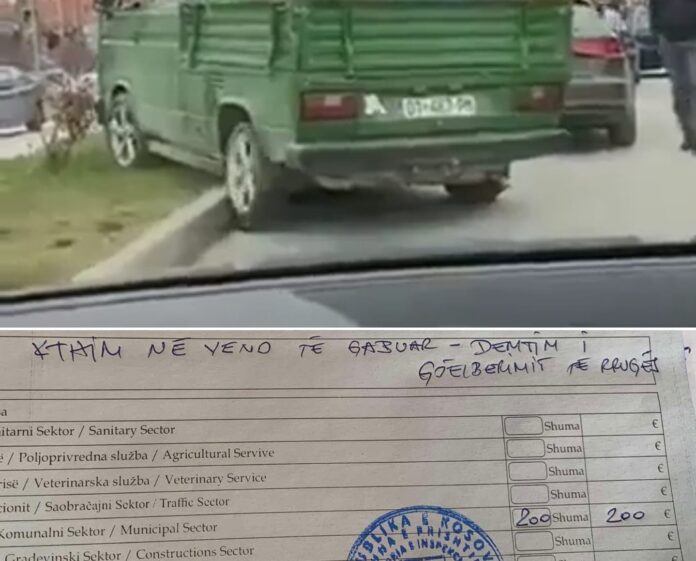 01·483·PM
KTHIM NË VEND TË GABUAR - DEMTIM I
GJELBERIMIT TË RRUGËS
sa
itarni Sektor / Sanitary Sector
Shuma €
ë / Poljoprivredna služba / Agricultural Servive
Shuma €
risë / Veterinarska služba / Veterinary Service
Shuma €
cionit / Saobračajni Sektor / Traffic Sector
Shuma €
Komunalni Sektor / Municipal Sector
200 Shuma 200 €
Građevinski Sektor / Constructions Sector
Shuma €
BLIKA E KOSOV